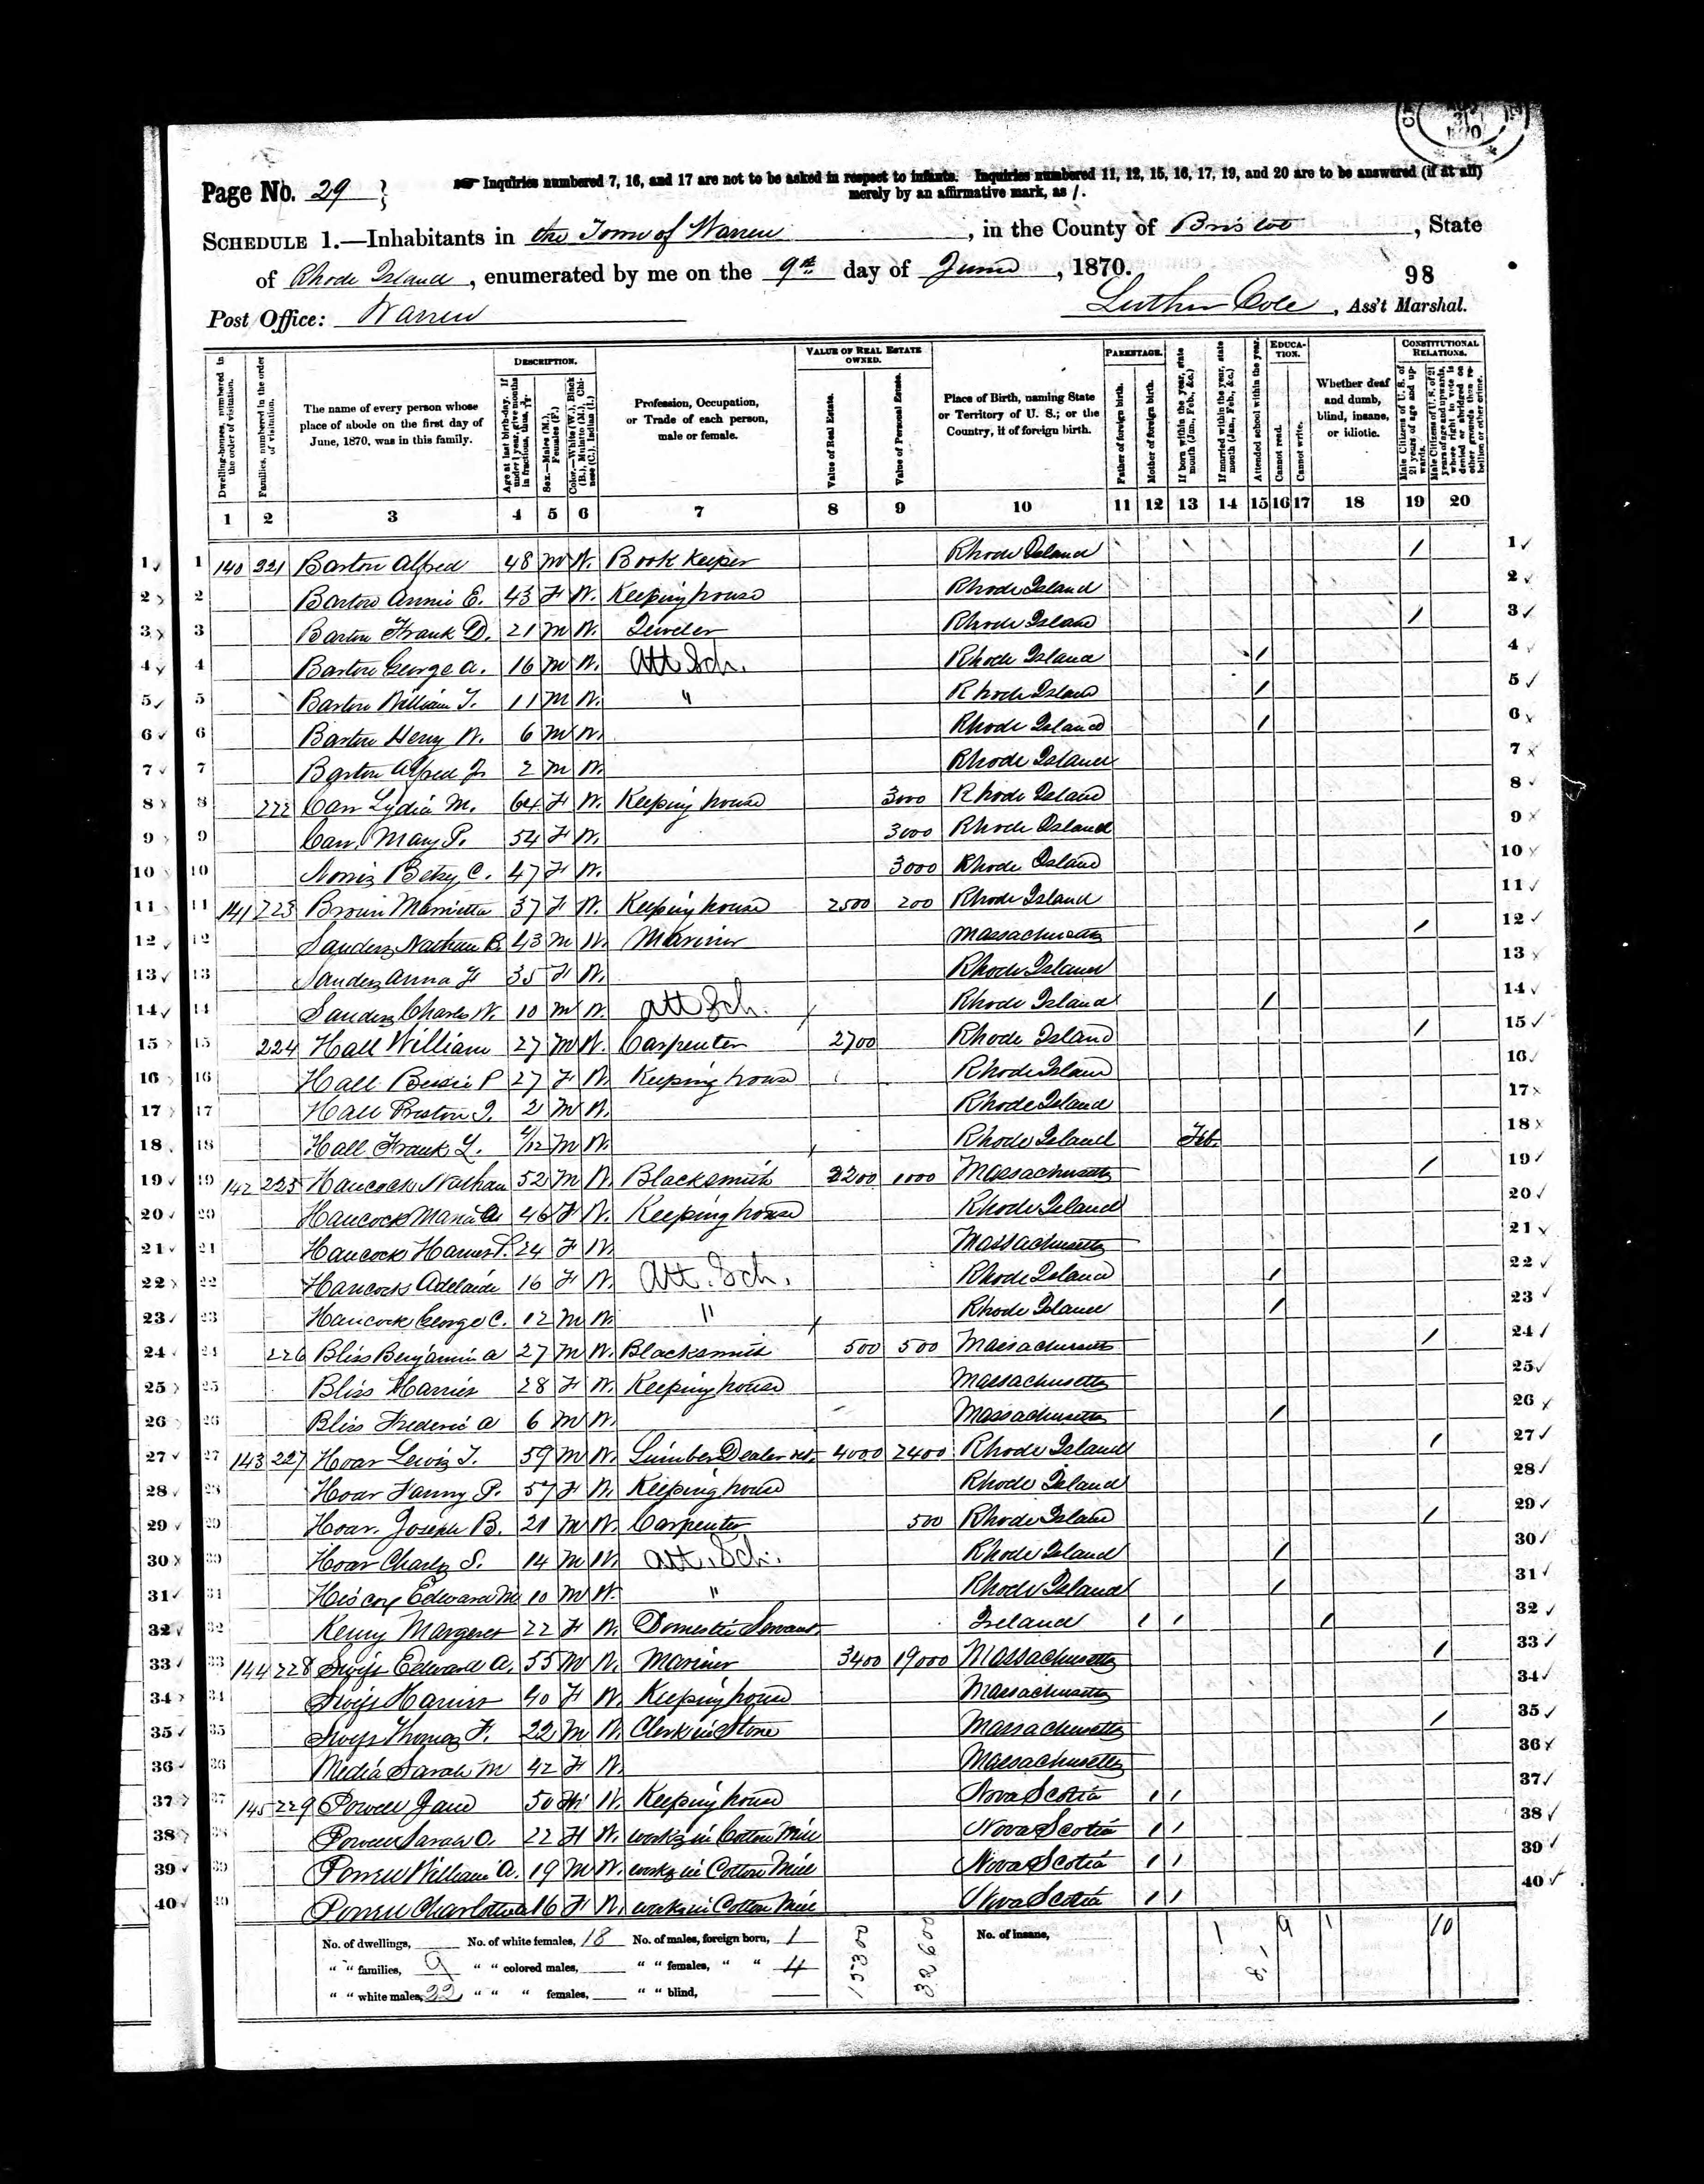 Page No. 29
Inquiries numbered 7, 16, and 17 are not to be asked in respect to infants. Inquiries numbered 11, 12, 15, 16, 17, 19, and 20 are to be answered (if at all)
merely by an affirmative mark, as /.
SCHEDULE 1.—Inhabitants in the Town of Warren, in the County of Bristol, State
of Rhode Island, enumerated by me on the 9th day of June, 1870.
98
Post Office: Warren
Luther Cole, Ass't Marshal.
Dwelling-houses, numbered in the order of visitation.
Families, numbered in the order of visitation.
The name of every person whose place of abode on the first day of June, 1870, was in this family.
DESCRIPTION.
Age at last birth-day. If under 1 year, give months in fractions, thus, 3/12
Sex.—Males (M.), Females (F.)
Color.—White (W.), Black (B.), Mulatto (M.), Chinese (C.), Indian (I.)
Profession, Occupation, or Trade of each person, male or female.
VALUE OF REAL ESTATE OWNED.
Value of Real Estate.
Value of Personal Estate.
Place of Birth, naming State or Territory of U. S.; or the Country, if of foreign birth.
PARENTAGE.
Father of foreign birth.
Mother of foreign birth.
If born within the year, state month (Jan., Feb., &c.)
If married within the year, state month (Jan., Feb., &c.)
Attended school within the year.
EDUCATION.
Cannot read.
Cannot write.
Whether deaf and dumb, blind, insane, or idiotic.
CONSTITUTIONAL RELATIONS.
Male Citizens of U. S. of 21 years of age and upwards.
Male Citizens of U. S. of 21 years of age and upwards, where right to vote is denied or abridged on other grounds than rebellion or other crime.
1 2 3 4 5 6 7 8 9 10 11 12 13 14 15 16 17 18 19 20
1 1 140 221 Barton Alfred 48 M W. Book Keeper Rhode Island / 1
2 2 Barton Annie E. 43 F W. Keeping house Rhode Island 2
3 3 Barton Frank D. 21 M W. Jeweler Rhode Island / 3
4 4 Barton George A. 16 M W. Att Sch. Rhode Island / 4
5 5 Barton William T. 11 M W. " Rhode Island / 5
6 6 Barton Henry W. 6 M W. Rhode Island / 6
7 7 Barton Alfred Jr 2 M W. Rhode Island 7
8 8 222 Carr Lydia M. 64 F W. Keeping house 3000 Rhode Island 8
9 9 Carr Mary P. 54 F W. 3000 Rhode Island 9
10 10 Norris Betsy C. 47 F W. 3000 Rhode Island 10
11 11 141 223 Brown Marrietta 37 F W. Keeping house 2500 200 Rhode Island 11
12 12 Sanders Nathan B. 43 M W. Mariner Massachusetts / 12
13 13 Sanders Anna F 35 F W. Rhode Island 13
14 14 Sanders Charles W. 10 M W. Att Sch. Rhode Island / 14
15 15 224 Hall William 27 M W. Carpenter 2700 Rhode Island / 15
16 16 Hall Bessie P 27 F W. Keeping house Rhode Island 16
17 17 Hall Preston J. 2 M W. Rhode Island 17
18 18 Hall Frank L. 4/12 M W. Rhode Island Feb. 18
19 19 142 225 Hancock Nathan 52 M W. Blacksmith 2200 1000 Massachusetts / 19
20 20 Hancock Maria A. 46 F W. Keeping house Rhode Island 20
21 21 Hancock Harriet P. 24 F W. Massachusetts 21
22 22 Hancock Adelaide 16 F W. Att. Sch. Rhode Island / 22
23 23 Hancock George C. 12 M W. " Rhode Island / 23
24 24 226 Bliss Benjamin A 27 M W. Blacksmith 500 500 Massachusetts / 24
25 25 Bliss Harriet 28 F W. Keeping house Massachusetts 25
26 26 Bliss Frederic A 6 M W. Massachusetts / 26
27 27 143 227 Hoar Lewis T. 59 M W. Lumber Dealer ret. 4000 2400 Rhode Island / 27
28 28 Hoar Fanny P. 57 F W. Keeping house Rhode Island 28
29 29 Hoar Joseph B. 21 M W. Carpenter 500 Rhode Island / 29
30 30 Hoar Charles S. 14 M W. Att. Sch. Rhode Island / 30
31 31 Hiscox Edward M 10 M W. " Rhode Island / 31
32 32 Kenny Margaret 22 F W. Domestic Servant Ireland / / / 32
33 33 144 228 Swift Edward A. 55 M W. Mariner 3400 19000 Massachusetts / 33
34 34 Swift Harriet 40 F W. Keeping house Massachusetts 34
35 35 Swift Thomas F. 22 M W. Clerk in Store Massachusetts / 35
36 36 Sarah M 42 F W. Massachusetts 36
37 37 145 229 Powell Jane 50 F W. Keeping house Nova Scotia / / 37
38 38 Powell Sarah O. 22 F W. works in Cotton Mill Nova Scotia / / 38
39 39 Powell William A. 19 M W. works in Cotton Mill Nova Scotia / / 39
40 40 Powell Charlotte 16 F W. works in Cotton Mill Nova Scotia / / 40
No. of dwellings, No. of white females, 18 No. of males, foreign born, 1 15300 32600 No. of insane, 1 8 9 1 10
" " families, 9 " " colored males, " " females, " " 4
" " white males, 22 " " " females, " " blind,